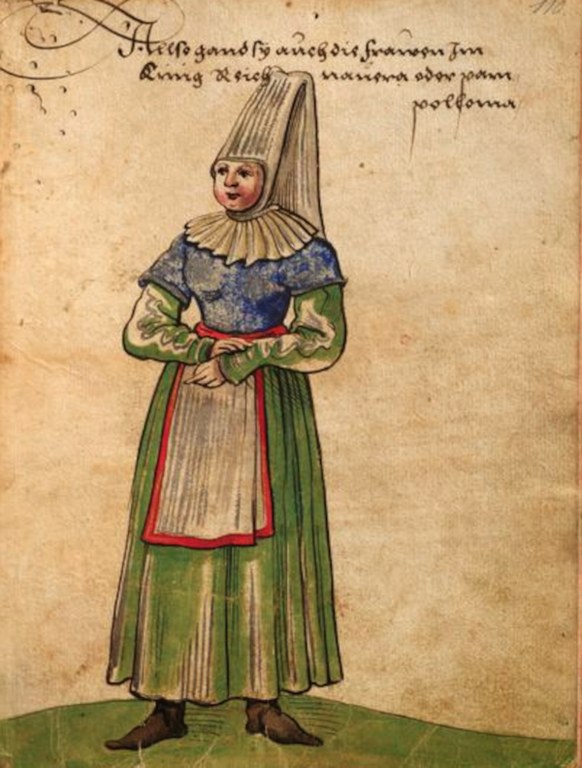 Allso gand sÿ aŭch die frawen Im
Künig Reich nauera oder pam
pollonia